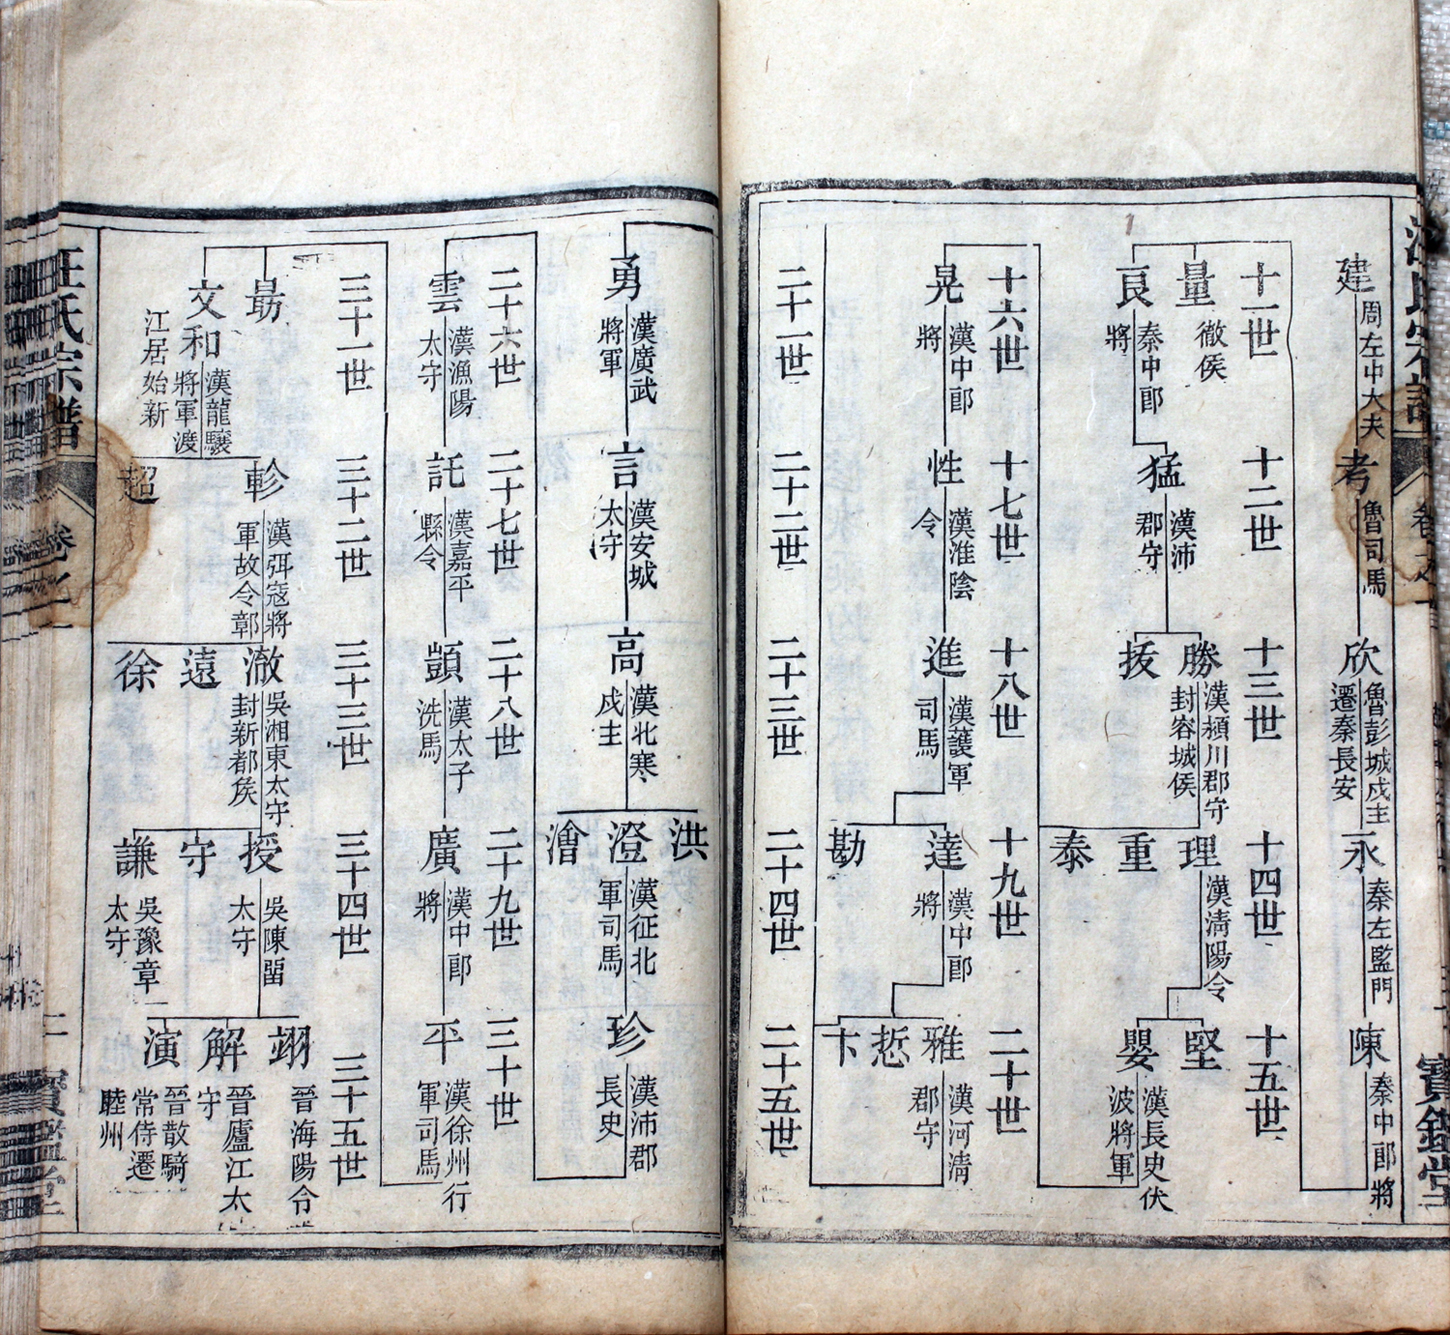 汪氏宗譜
卷之一
寶鑑堂
建
周左中大夫
考
魯司馬
欣
魯彭城戍主
遷秦長安
永
秦左監門
陳
秦中郎將
十一世
十二世
十三世
十四世
十五世
量
徹侯
良
秦中郎
將
猛
漢沛
郡守
勝
漢潁川郡守
封容城侯
援
理
漢淸陽令
重
泰
堅
嬰
漢長史伏
波將軍
十六世
十七世
十八世
十九世
二十世
晃
漢中郎
將
性
漢淮陰
令
進
漢護軍
司馬
達
漢中郎
將
勘
雅
漢河淸
郡守
悊
卞
二十一世
二十二世
二十三世
二十四世
二十五世
勇
漢廣武
將軍
言
漢安城
太守
高
漢北寒
戍主
洪
澄
漢征北
軍司馬
澮
珍
漢沛郡
長史
二十六世
二十七世
二十八世
二十九世
三十世
雲
漢漁陽
太守
託
漢嘉平
縣令
顗
漢太子
洗馬
廣
漢中郎
將
平
漢徐州行
軍司馬
三十一世
三十二世
三十三世
三十四世
三十五世
勗
文和
漢龍驤
將軍渡
江居始新
軫
漢弭寇將
軍故令鄣
超
澈
吳湘東太守
封新都矦
遠
徐
授
吳陳留
太守
守
謙
吳豫章
太守
翊
晉海陽令
解
晉廬江太
守
演
晉散騎
常侍遷
睦州
汪氏宗譜
卷之一
二
寶鑑堂